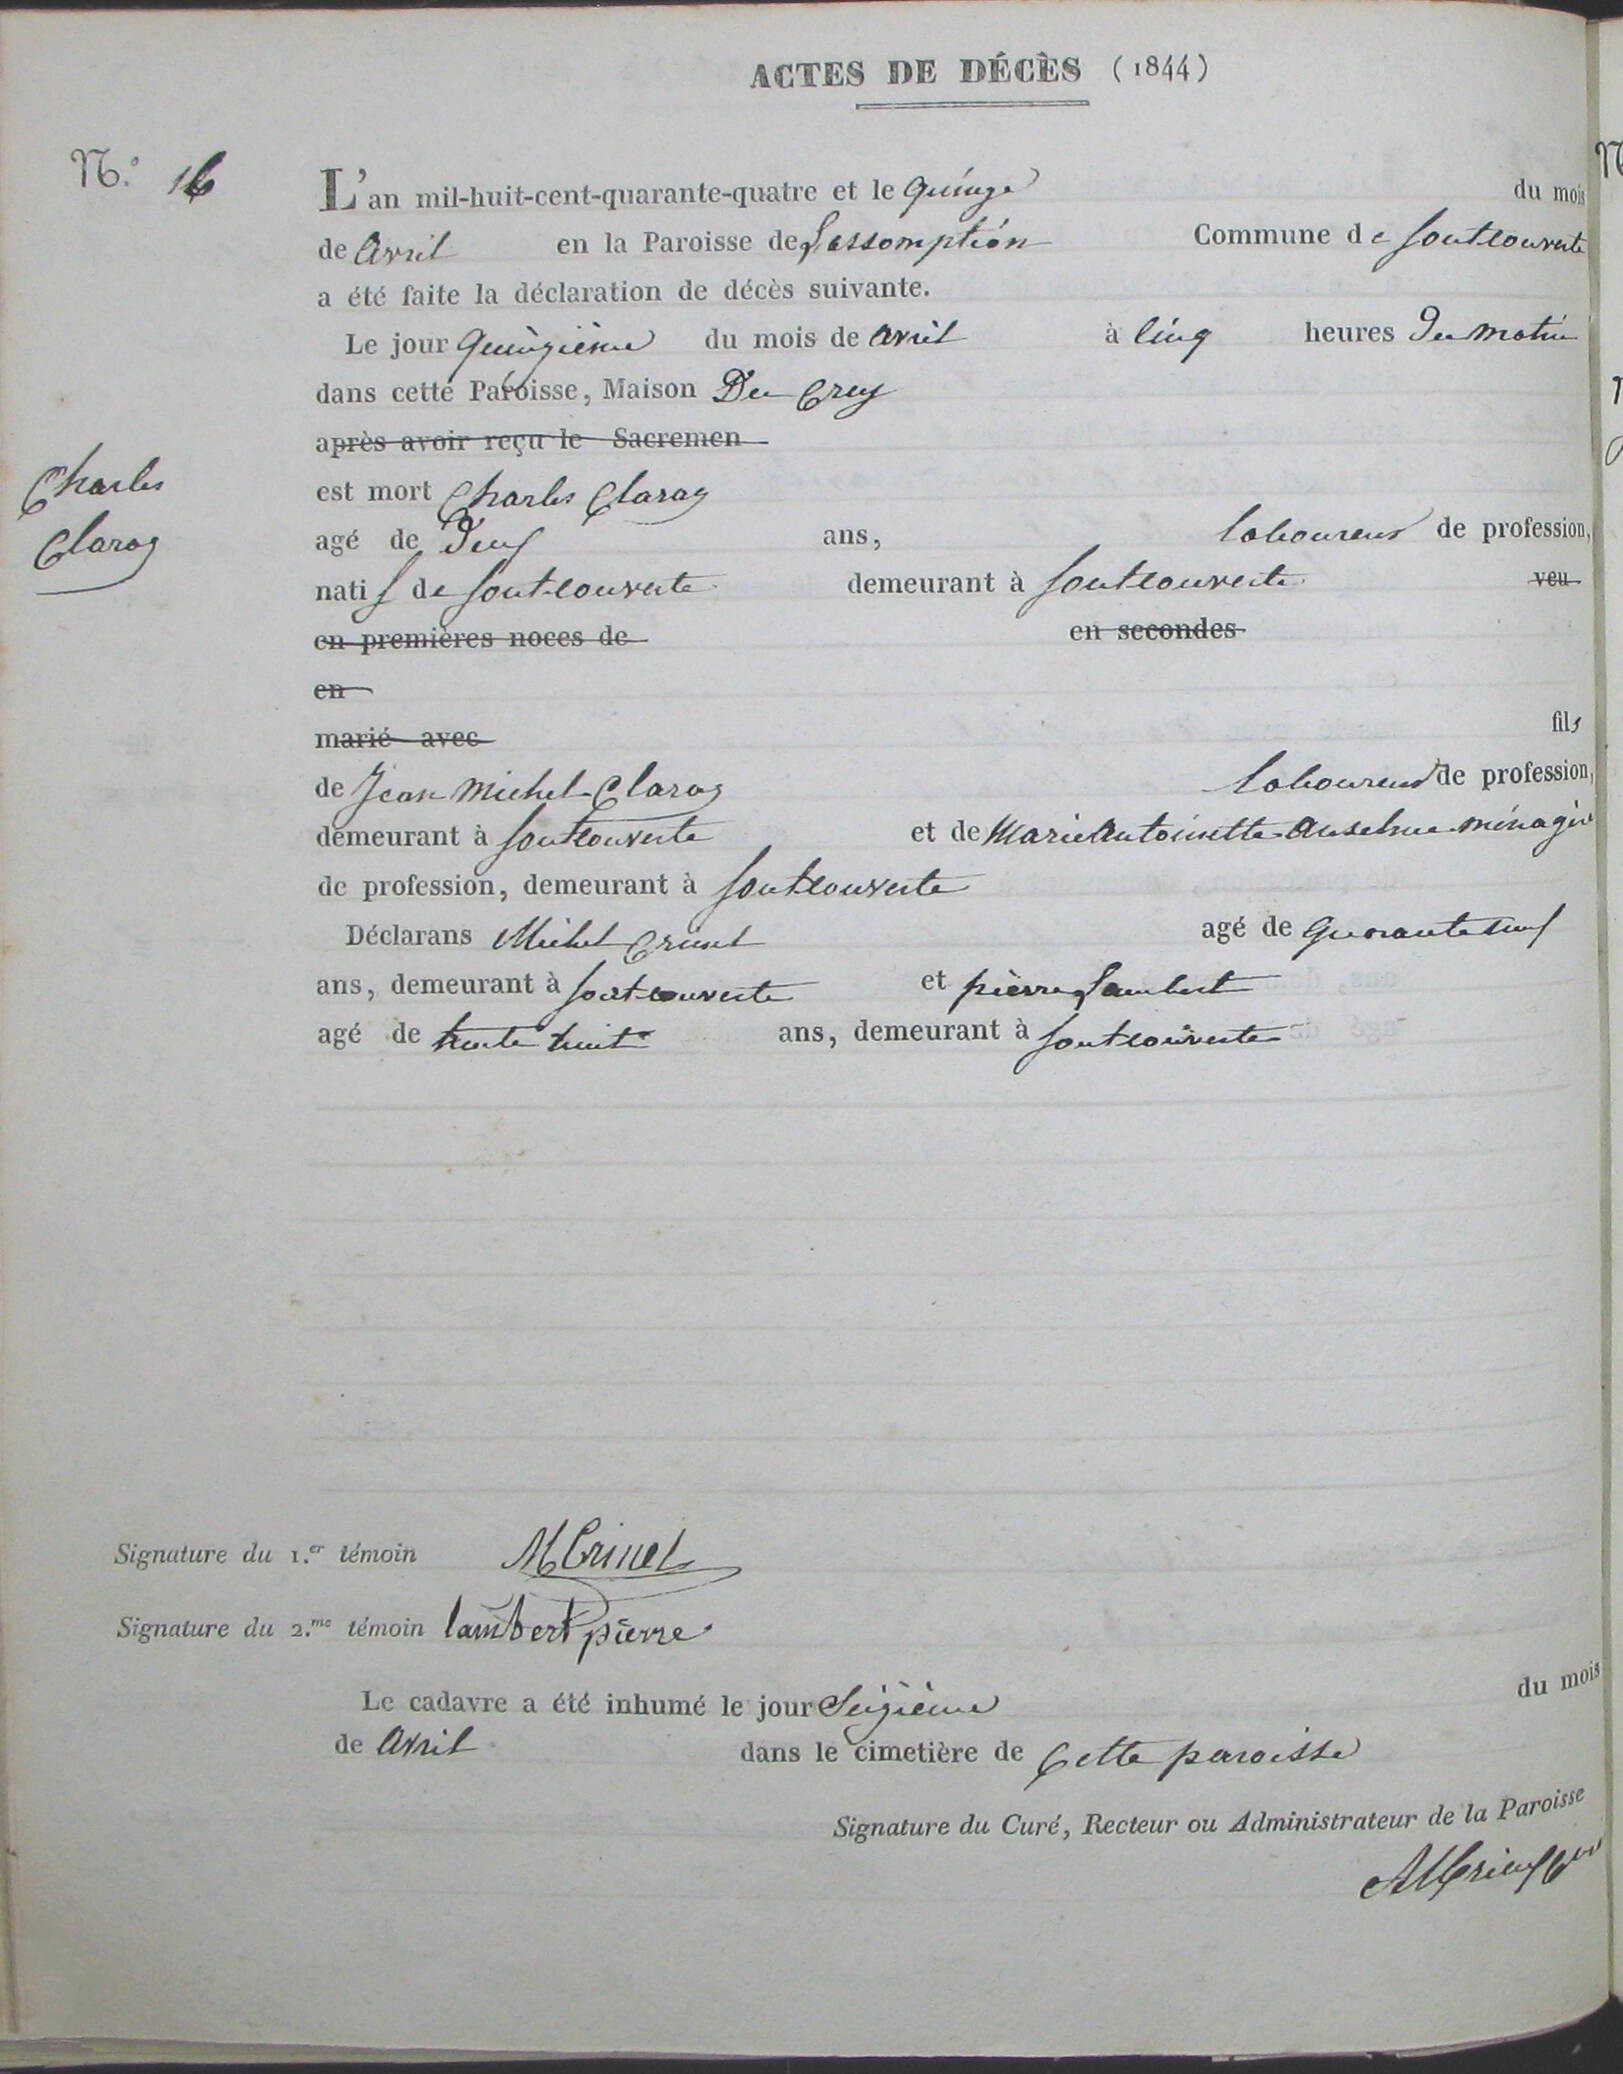 ACTES DE DÉCÈS (1844)
N.º 16
L'an mil-huit-cent-quarante-quatre et le quinze du mois
de avril en la Paroisse de Lassomption Commune de fontcouverte
a été faite la déclaration de décès suivante.
Le jour quinzième du mois de avril à cinq heures du matin
dans cette Paroisse, Maison Du Crey
après avoir reçu le Sacremen
Charles
Claraz
est mort Charles Claraz
agé de Deux ans, laboureur de profession,
natif de fontcouverte demeurant à fontcouverte veu
en premières noces de en secondes
en
marié avec fils
de Jean Michel Claraz laboureur de profession,
demeurant à fontcouverte et de Marie Antoinette Anselme ménagère
de profession, demeurant à fontcouverte
Déclarans Michel Crinel agé de quarante neuf
ans, demeurant à fontcouverte et pierre Lambert
agé de trente huit ans, demeurant à fontcouverte
Signature du 1.er témoin MCrinel
Signature du 2.me témoin lambert pierre
Le cadavre a été inhumé le jour Seizième du mois
de avril dans le cimetière de Cette paroisse
Signature du Curé, Recteur ou Administrateur de la Paroisse